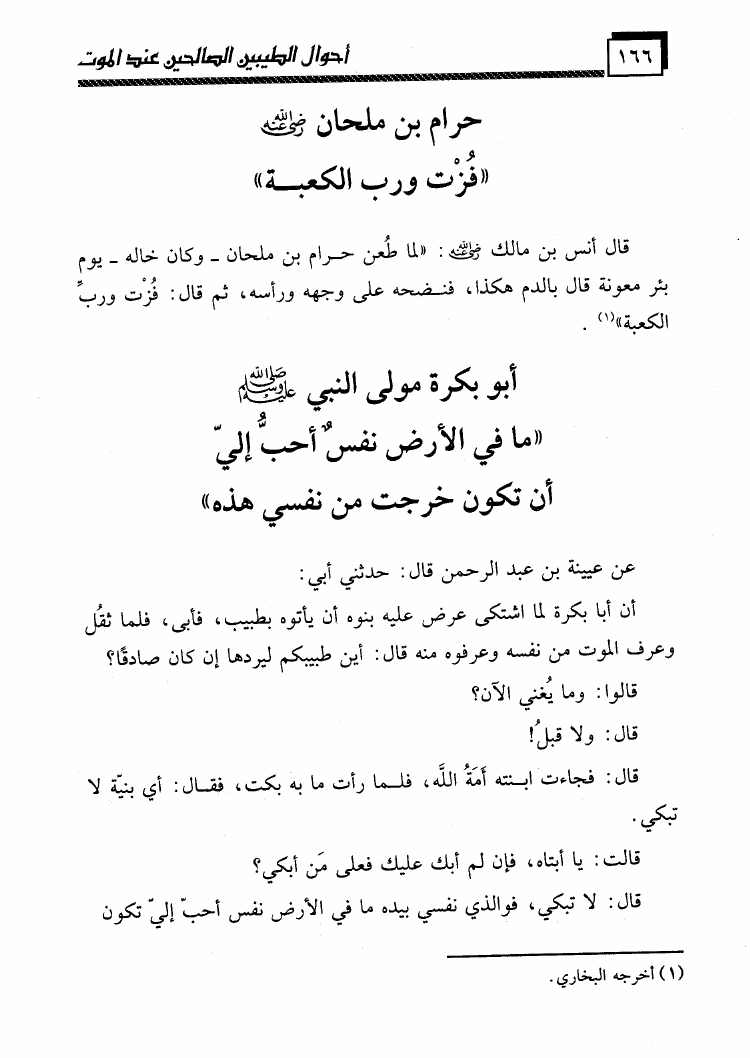 ١٦٦
أحوال الطيبين الصالحين عند الموت
حرام بن ملحان رضي الله عنه
«فُزْت ورب الكعبـة»
قال أنس بن مالك رضي الله عنه: «لما طُعن حـرام بن ملحان ـ وكان خاله ـ يوم
بئر معونة قال بالدم هكذا، فنـضحه على وجهه ورأسه، ثم قال: فُزْت وربِّ
الكعبة»(١) .
أبو بكرة مولى النبي ﷺ
«ما في الأرض نفسٌ أحبُّ إليّ
أن تكون خرجت من نفسي هذه»
عن عيينة بن عبد الرحمن قال: حدثني أبي:
أن أبا بكرة لما اشتكى عرض عليه بنوه أن يأتوه بطبيب، فأبى، فلما ثقُل
وعرف الموت من نفسه وعرفوه منه قال: أين طبيبكم ليردها إن كان صادقًا؟
قالوا: وما يُغني الآن؟
قال: ولا قبلُ!
قال: فجاءت ابـنته أَمَةُ اللَّه، فلـما رأت ما به بكت، فقـال: أي بنيّة لا
تبكي.
قالت: يا أبتاه، فإن لم أبك عليك فعلى مَن أبكي؟
قال: لا تبكي، فوالذي نفسي بيده ما في الأرض نفس أحبّ إليّ تكون
(١) أخرجه البخاري.